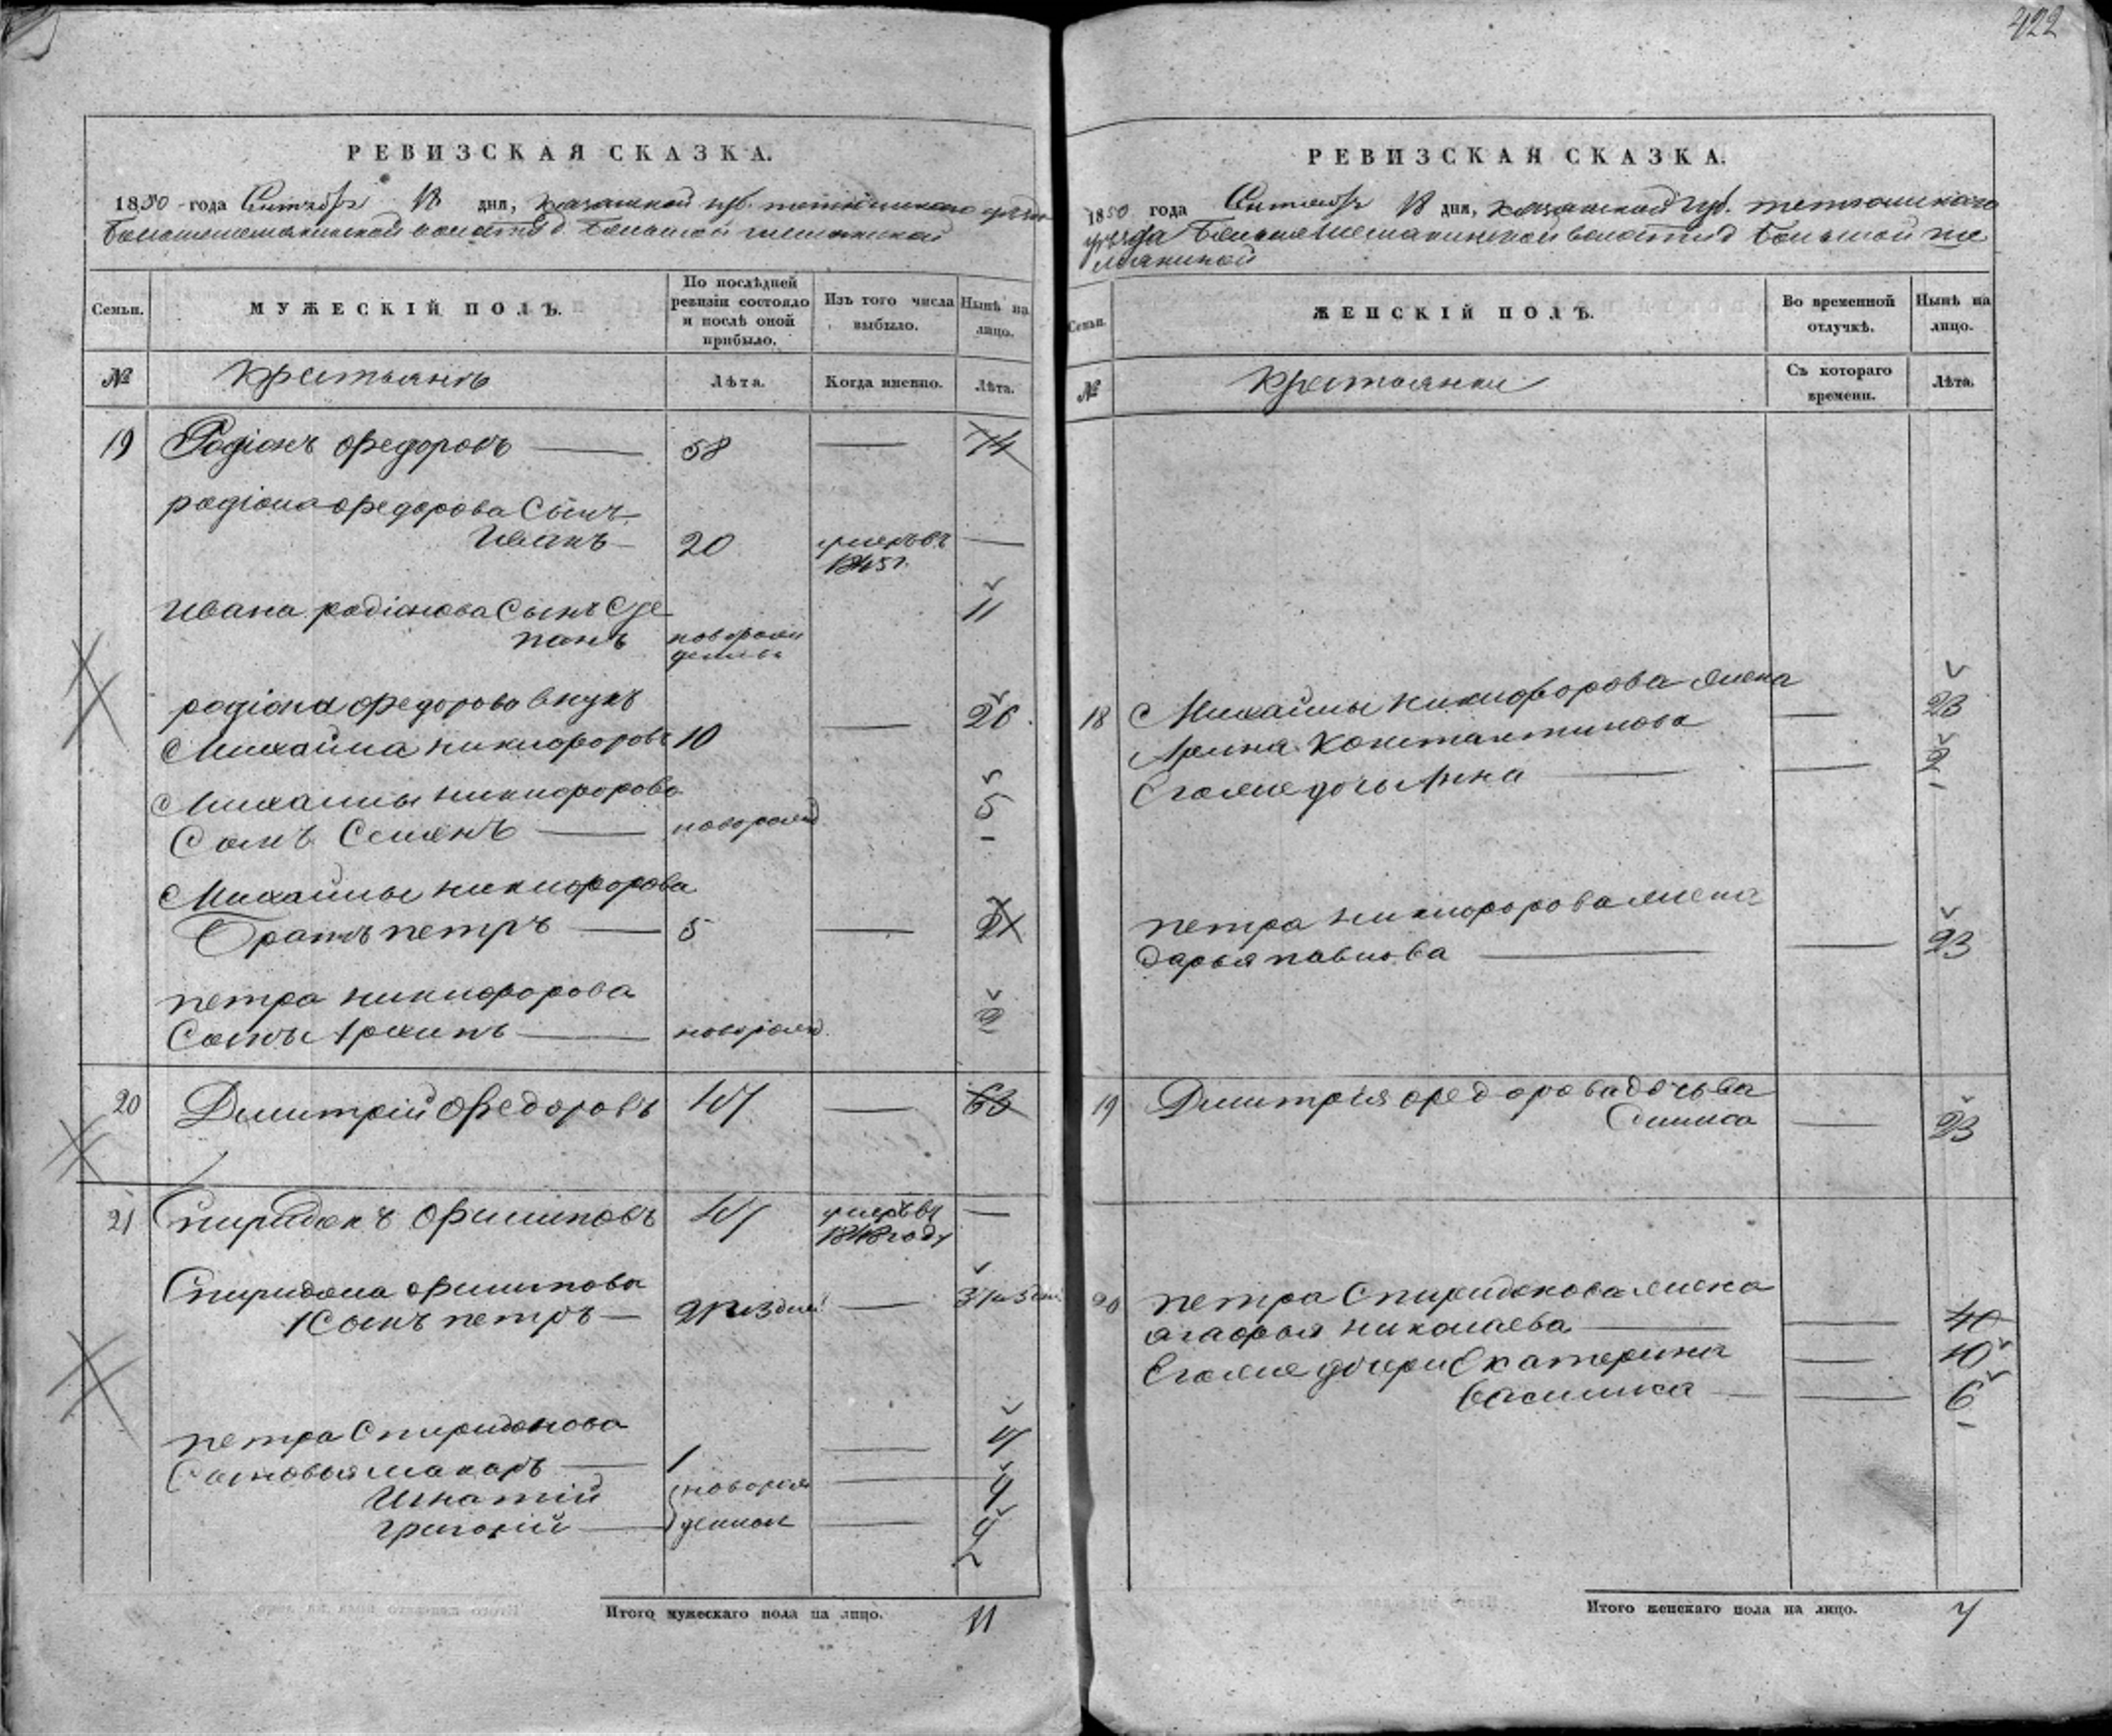 422
РЕВИЗСКАЯ СКАЗКА.
1850 года Сентября 18 дня, Казанской губ. тетюшскаго уезда
Большешемякинской волости д. Большой шемякиной
Семьи.
МУЖЕСКІЙ ПОЛЪ.
По послѣдней ревизіи состояло и послѣ оной прибыло.
Изъ того числа выбыло.
Нынѣ на лицо.
№
крестьянъ
Лѣта.
Когда имянно.
Лѣта.
19 Радіонъ Федоровъ 58 — 74
радіона Федорова Сынъ
Иванъ 20 умеръ въ —
1845 г.
Ивана радіонова Сынъ Сте 11
панъ новорож
денный
радіона Федорова внукъ 26
Михайла никифоровъ 10 —
Михайлы никифорова 5
Сынъ Семенъ новорожд
Михайлы никифорова
Братъ петръ 5 — 21
петра никифорова 2
Сынъ Архипъ новорожд.
20 Дмитрій Федоровъ 47 — 63
21 Спиридонъ Филиповъ 47 умеръ въ —
1848 году
Спиридона Филипова
1 Сынъ петръ —
петра Спиридонова
Сыновья макаръ 1 — 17
Игнатій новорож — 9
григорій денные —
Итого мужескаго пола на лицо. 11
РЕВИЗСКАЯ СКАЗКА.
1850 года Сентября 18 дня, Казанской губ. тетюшскаго
уезда Большешемякинской волости д Большой ше
мякиной
Семьи.
ЖЕНСКІЙ ПОЛЪ.
Во временной отлучкѣ.
Нынѣ на лицо.
№
Крестьянки
Съ котораго времени.
Лѣта.
18 Михайлы никифорова жена
Арина Константинова — 23
Ихъ дочь Анна — 2
петра никифорова жена
дарья павлова — 23
19 Дмитрія федорова дочь Ва
силиса — 23
20 петра Спиридонова жена
агафья николаева — 40
дочери Екатерина — 10
василиса — 6
Итого женскаго пола на лицо. 7